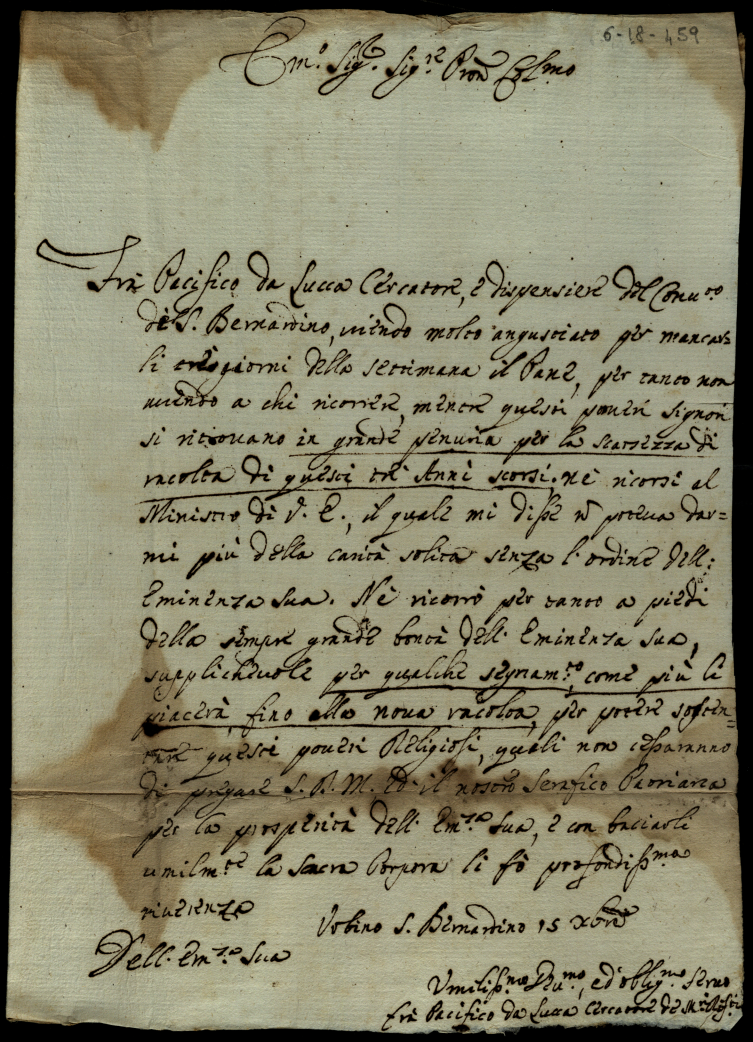 6-18-459
Em.º Sig.r Sig.re Pron Col.mo
Frà Pacifico da Lucca Cercatore, e dispensiere del Conu.to
di S. Bernardino, uiendo molto angusciato per mancar=
li trè giorni della settimana il Pane, per tanto non
uiendo a chi ricorrere, mentre questi poueri Signori
si ritrouano in grande penuria per la scarsezza di
racolta di questi trè Anni scorsi. nè ricorsi al
Ministro di V. E., il quale mi disse ñ poteua dar=
mi più della carità solita senza l'ordine dell:
Eminenza Sua. Nè ricorrò per tanto a piedi
della sempre grande bontà dell' Eminenza Sua,
supplicheuole per qualche segnam.to, come più li
piacerà, fino alla noua racolta, per potere sosten=
tare questi poueri Religiosi, quali non cessaranno
di pregare S. D. M. ed il nostro Serafico Patriarca
per la prosperità dell' Em.za Sua, e con baciarli
umilm.te la Sacra Porpora li fò profondiss.ma
riuerenza
Vrbino S. Bernardino 15 Xbre
Dell' Em.za Sua
Vmiliss.mo Deu.mo, ed oblig.mo Seruo
Frà Pacifico da Lucca Cercatore de